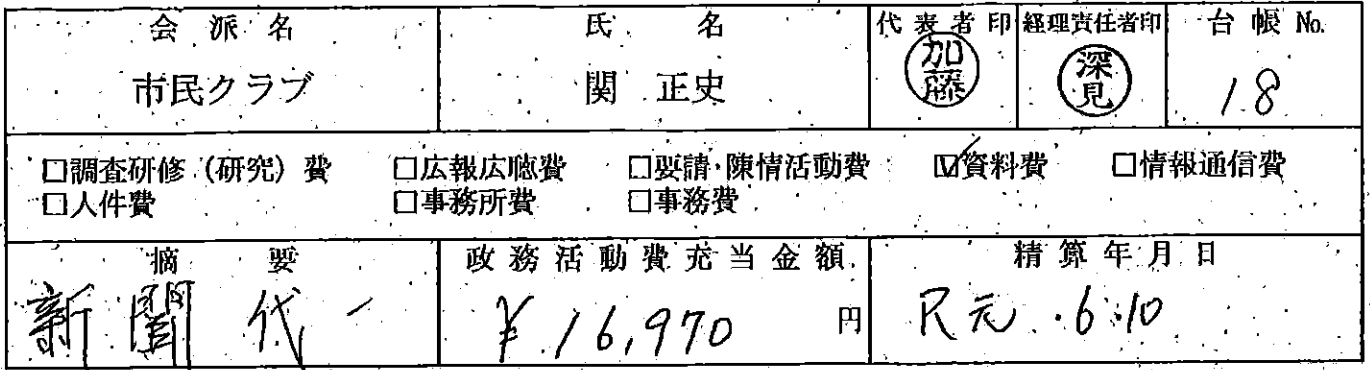 会派名 氏名 代表者印 経理責任者印 台帳No.
市民クラブ 関 正史 加藤 深見 18
□調査研修(研究)費 □広報広聴費 □要請・陳情活動費 ☑資料費 □情報通信費
□人件費 □事務所費 □事務費
摘要 政務活動費充当金額 精算年月日
新聞代 ¥16,970 円 R元.6.10